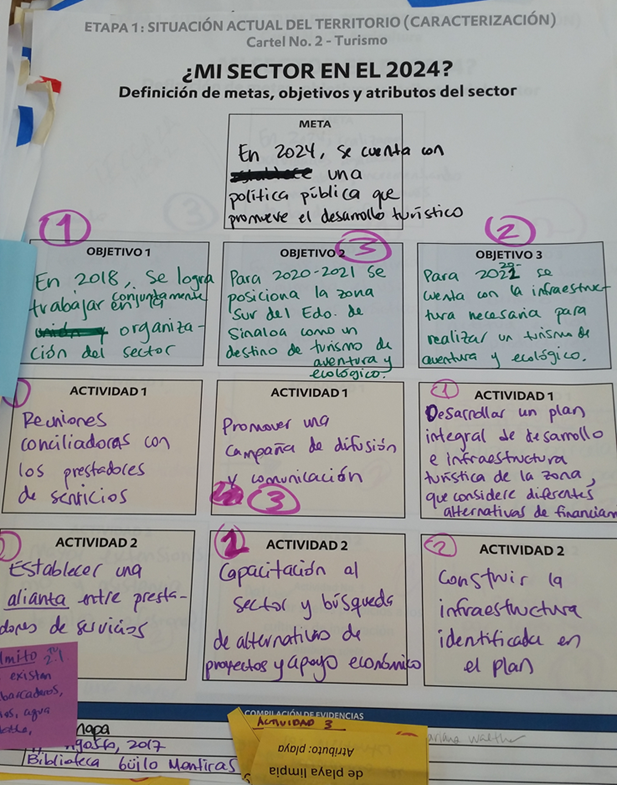 ETAPA 1: SITUACIÓN ACTUAL DEL TERRITORIO (CARACTERIZACIÓN)
Cartel No. 2 - Turismo
¿MI SECTOR EN EL 2024?
Definición de metas, objetivos y atributos del sector
META
En 2024, se cuenta con
una
política pública que
promueve el desarrollo turístico
1
OBJETIVO 1
En 2018, se logra
trabajar conjuntamente en la
organiza-
ción del sector
3
OBJETIVO 2
Para 2020-2021 se
posiciona la zona
Sur del Edo. de
Sinaloa como un
destino de turismo de
aventura y
ecológico.
2
OBJETIVO 3
Para 2022 se
cuenta con la infraestruc-
tura necesaria para
realizar un turismo de
aventura y ecológico.
ACTIVIDAD 1
Reuniones
conciliadoras con
los prestadores
de servicios
ACTIVIDAD 1
Promover una
campaña de difusión
y comunicación
3
1
ACTIVIDAD 1
Desarrollar un plan
integral de desarrollo
e infraestructura
turística de la zona,
que considere diferentes
alternativas de financiam
ACTIVIDAD 2
Establecer una
alianza entre presta-
dores de servicios
ACTIVIDAD 2
Capacitación al
sector y búsqueda
de alternativas de
proyectos y apoyo económico
2
ACTIVIDAD 2
Construir la
infraestructura
identificada en
el plan
existan
barcaderos,
agua
COMPILACIÓN DE EVIDENCIAS
ACTIVIDAD 3
Atributo: playa
de playa limpia
napa
agosto, 2017
Biblioteca Güilo Mentiras